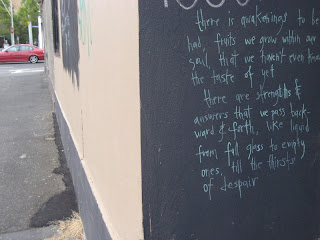 there is awakenings to be
had, fruits we grow within our
soul, that we haven't even known
the taste of yet
there are strengths &
answers that we pass back-
ward & forth, like liquid
from full glass to empty
ones, till the thirsts
of despair